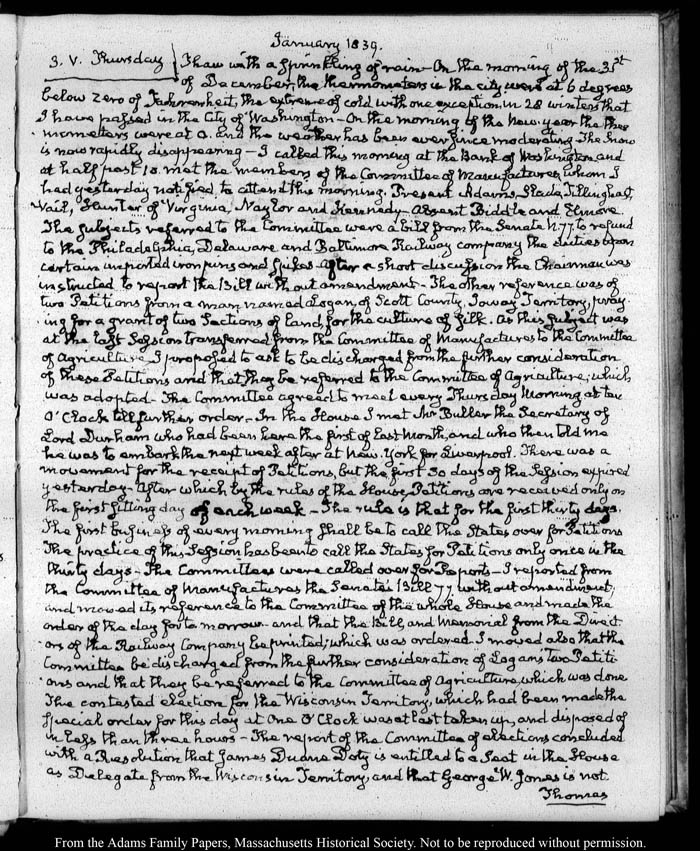 January 1839.
3. V. Thursday Thaw with a sprinkling of rain – On the morning of the 31st
of December, the thermometers in the city were at 6 degrees
below zero of Fahrenheit, the extreme of cold with one exception, in 28 winters that
I have passed in the City of Washington – On the morning of the New-year the ther
mometers were at 0. and the weather has been ever since moderating – The Snow
is now rapidly disappearing – I called this morning at the Bank of Washington, and
at half past 10. met the members of the Committee of Manufactures, whom I
had yesterday notified to attend this morning. Present Adams, Slade, Tillinghast,
Vail, Hunter of Virginia, Naylor and Kennedy – Absent Biddle and Elmore.
The subjects referred to the Committee were a bill from the Senate N. 77. to refund
to the Philadelphia, Delaware and Baltimore Railway company the duties upon
certain imported iron pins and spikes – After a short discussion the Chairman was
instructed to report the Bill without amendment – The other reference was of
two Petitions from a man named Logan, of Scott County, Ioway Territory, pray
ing for a grant of two Sections of land, for the culture of silk. As this subject was
at the last Session transferred from the Committee of Manufactures to the Committee
of Agriculture, I proposed to ask to be discharged from the further consideration
of these Petitions and that they be referred to the Committee of Agriculture; which
was adopted – The Committee agreed to meet every Thursday Morning at ten
O'Clock till further order – In the House I met Mr Buller the Secretary of
Lord Durham who had been here the first of last Month, and who then told me
he was to embark the next week after at New-York for Liverpool. There was a
movement for the receipt of Petitions, but the first 30 days of the Session expired
yesterday – After which by the rules of the House, Petitions are received only on
the first sitting day of each week – The rule is that for the first thirty days,
The first business of every morning shall be to call the States over for Petitions
The practice of this Session has been to call the States for Petitions only once in the
thirty days – The Committees were called over for Reports – I reported from
the Committee of Manufactures the Senate's Bill 77 without amendment;
and moved its reference to the Committee of the whole House and made the
order of the day for to morrow – and that the Bill, and Memorial from the Direct
ors of the Railway Company be printed; which was ordered. I moved also that the
Committee be discharged from the further consideration of Logan's Two Petiti
ons and that they be referred to the Committee of Agriculture, which was done
The contested election for the Wisconsin Territory, which had been made the
special order for this day at One O'Clock was at last taken up, and disposed of
in less than three hours – The report of the Committee of elections concluded
with a Resolution that James Duane Doty is entitled to a seat in the House
as Delegate from the Wisconsin Territory, and that George W. Jones is not.
Thomas
From the Adams Family Papers, Massachusetts Historical Society. Not to be reproduced without permission.